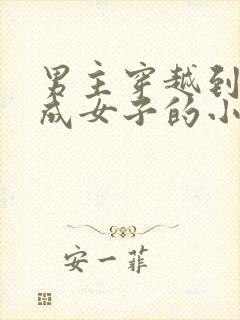 男主穿越到
成女子的小
安一菲